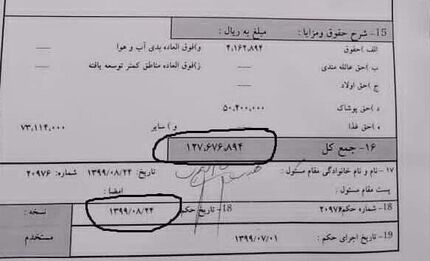 15- شرح حقوق ومزایا : مبلغ به ریال :
الف )حقوق ۴,۱۶۲,۸۹۴ و)فوق العاده بدی آب و هوا ----
ب )حق عائله مندی ---- ز)فوق العاده مناطق کمتر توسعه یافته ----
ج )حق اولاد
د )حق پوشاک ۵۰,۴۰۰,۰۰۰
ه )حق غذا و ) سایر ۷۳,۱۱۴,۰۰۰
۱۶- جمع کل ۱۲۷,۶۷۶,۸۹۴
۱۷- نام و نام خانوادگی مقام مسئول : تاریخ: ۱۳۹۹/۰۸/۲۴ شماره: ۲۰۹۷۶
پست مقام مسئول : امضا :
18- شماره حکم: ۲۰۹۷۶ 18- تاریخ حکم : ۱۳۹۹/۰۸/۲۴ نسخه :
19- تاریخ اجرای حکم : ۱۳۹۹/۰۷/۰۱ مستخدم